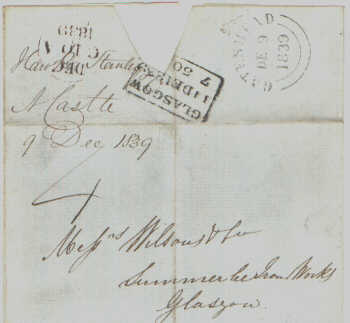 GATESHEAD
DE 9
1839
DEC 10 A
1839
GLASGOW
11 DEC 1839
7 50
Hawks Stanley
NCastle
9 Dec 1839
4
Messrs Wilsons & Co
Summerlee Iron Works
Glasgow